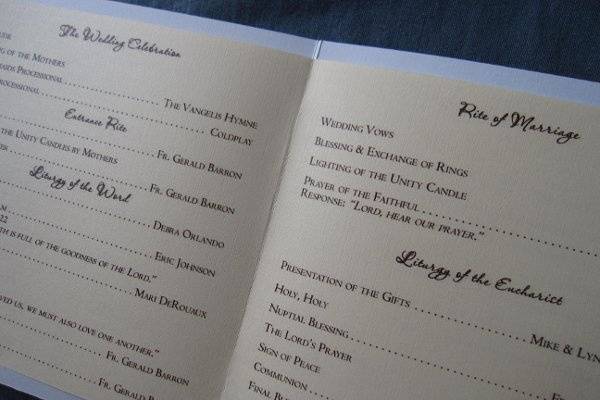 The Wedding Celebration
of the Mothers
Processional
The Vangelis Hymne
Processional
Coldplay
Entrance Rite
Fr. Gerald Barron
the Unity Candles by Mothers
Fr. Gerald Barron
Liturgy of the Word
Debra Orlando
Eric Johnson
22
is full of the goodness of the Lord."
Mari DeRouaux
us, we must also love one another."
Fr. Gerald Barron
Fr. Gerald
Rite of Marriage
Wedding Vows
Blessing & Exchange of Rings
Lighting of the Unity Candle
Prayer of the Faithful
Response: "Lord, hear our prayer."
Liturgy of the Eucharist
Presentation of the Gifts Mike & Lyn
Holy, Holy
Nuptial Blessing
The Lord's Prayer
Sign of Peace
Communion
Final